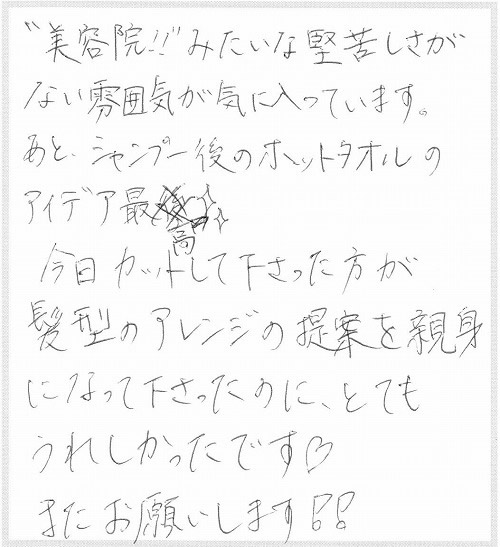 "美容院!!"みたいな堅苦しさが
ない雰囲気が気に入っています。
あと、シャンプー後のホットタオルの
アイデア最高☆☆
今日カットして下さった方が
髪型のアレンジの提案を親身
になって下さったのに、とても
うれしかったです♡
またお願いします!!